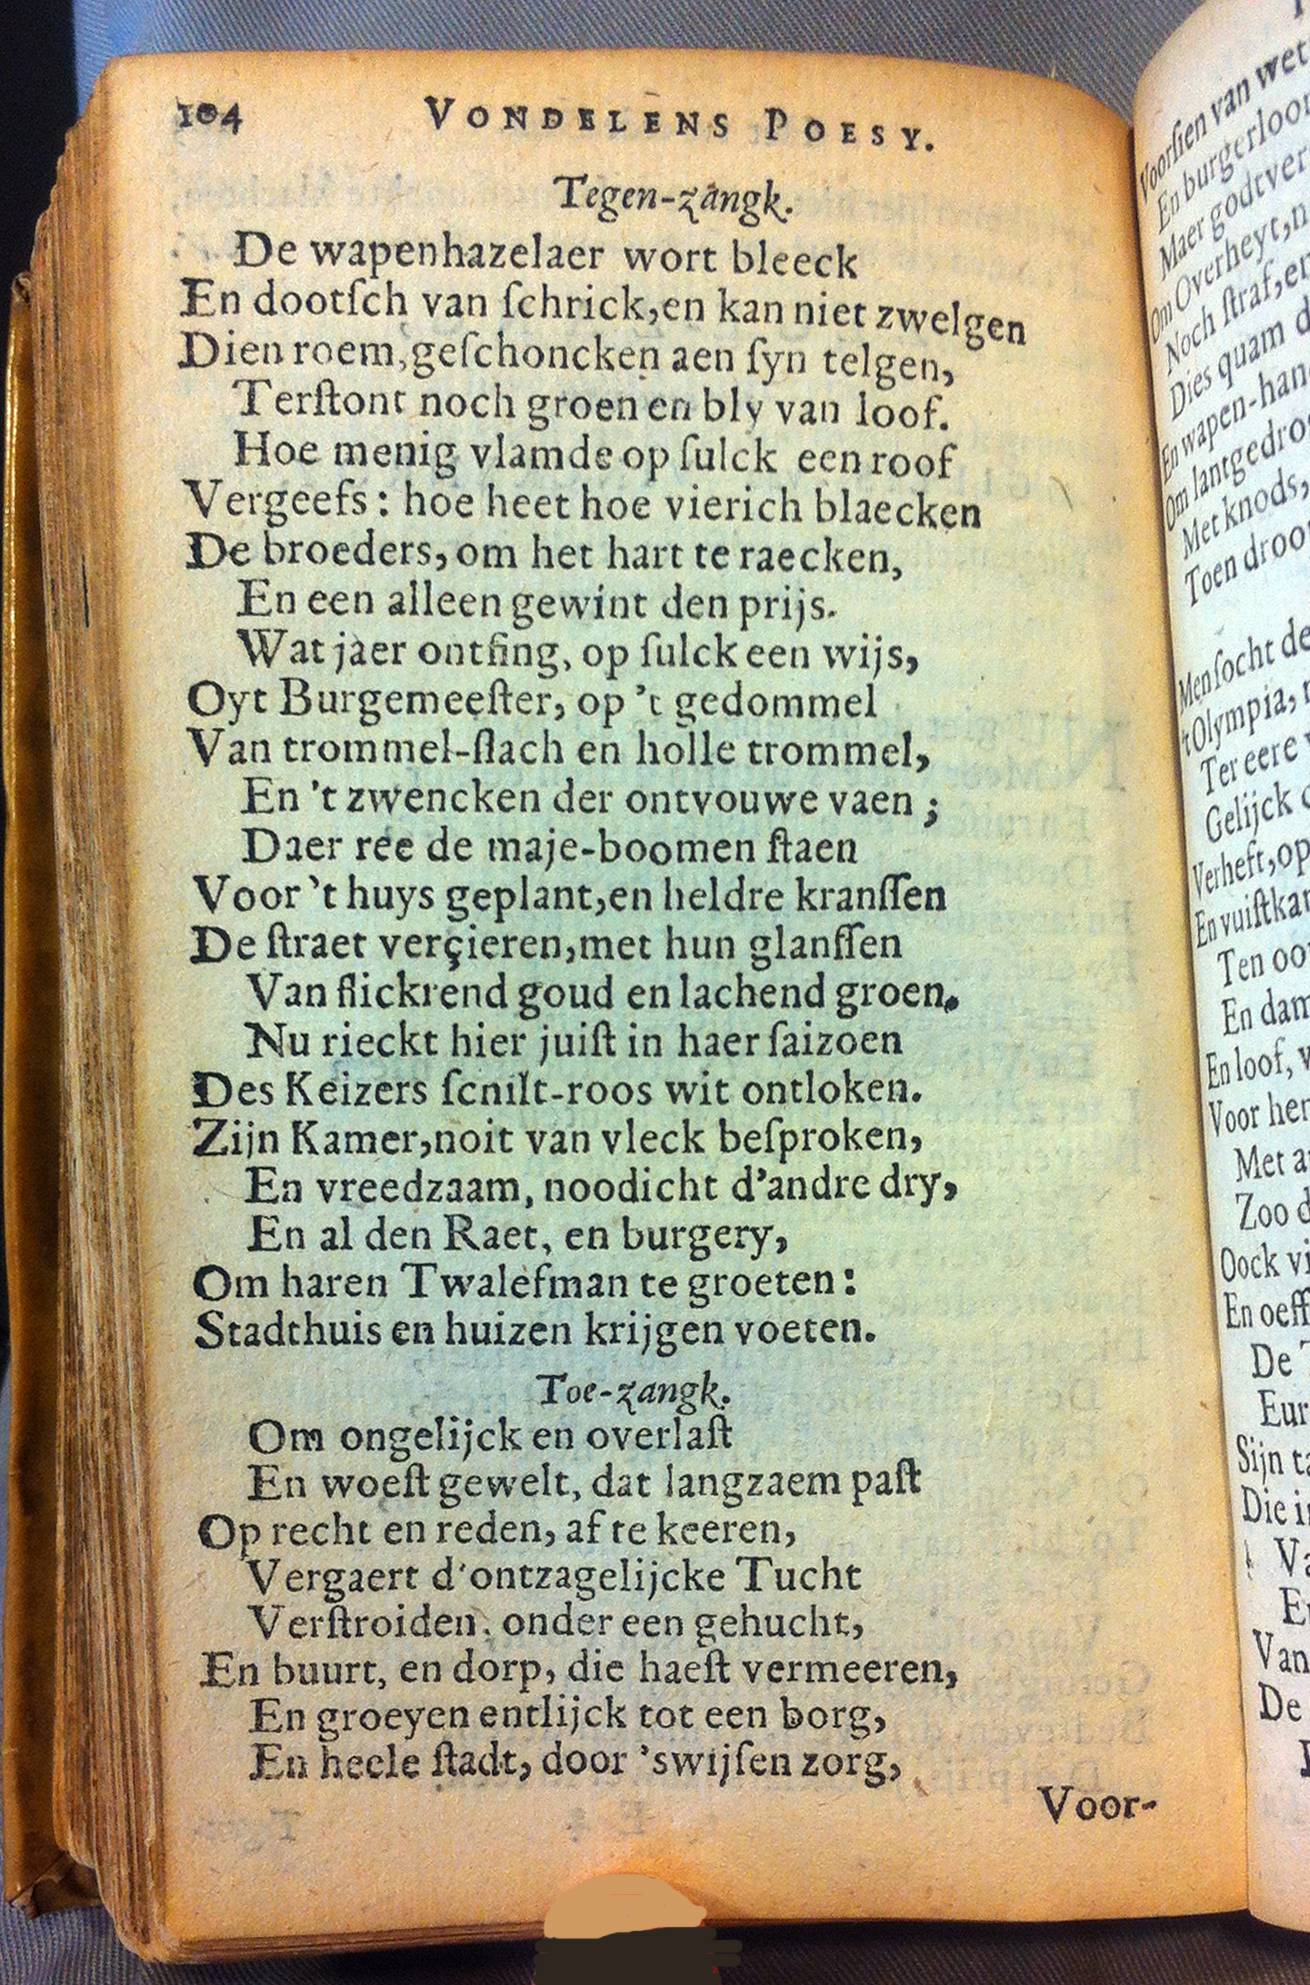 104 VONDELENS POESY.
Tegen-zangk.
De wapenhazelaer wort bleeck
En dootſch van ſchrick, en kan niet zwelgen
Dien roem, geſchoncken aen ſyn telgen,
Terſtont noch groen en bly van loof.
Hoe menig vlamde op ſulck een roof
Vergeefs: hoe heet hoe vierich blaecken
De broeders, om het hart te raecken,
En een alleen gewint den prijs.
Wat jaer ontfing, op ſulck een wijs,
Oyt Burgemeeſter, op 't gedommel
Van trommel-ſlach en holle trommel,
En 't zwencken der ontvouwe vaen;
Daer ree de maje-boomen ſtaen
Voor 't huys geplant, en heldre kranſſen
De ſtraet verçieren, met hun glanſſen
Van flickrend goud en lachend groen.
Nu rieckt hier juiſt in haer ſaizoen
Des Keizers ſchilt-roos wit ontloken.
Zijn Kamer, noit van vleck beſproken,
En vreedzaam, noodicht d'andre dry,
En al den Raet, en burgery,
Om haren Twalefman te groeten:
Stadthuis en huizen krijgen voeten.
Toe-zangk.
Om ongelijck en overlaſt
En woeſt gewelt, dat langzaem paſt
Op recht en reden, af te keeren,
Vergaert d'ontzagelijcke Tucht
Verſtroiden, onder een gehucht,
En buurt, en dorp, die haeſt vermeeren,
En groeyen entlijck tot een borg,
En heele ſtadt, door 'swijſen zorg,
Voor-
Voorſien van wet
En burgerloon
Maer godtver
Om Overheyt, n
Noch ſtraf, en
Dies quam d
En wapen-han
Om lantgedro
Met knods,
Toen droo
Men ſocht de
't Olympia,
Ter eere
Gelijck
Verheft, op
En vuiſtka
Ten oo
En dam
En loof,
Voor her
Met a
Zoo d
Oock vi
En oeff
De
Eur
Sijn ta
Die i
Va
E
Van
De